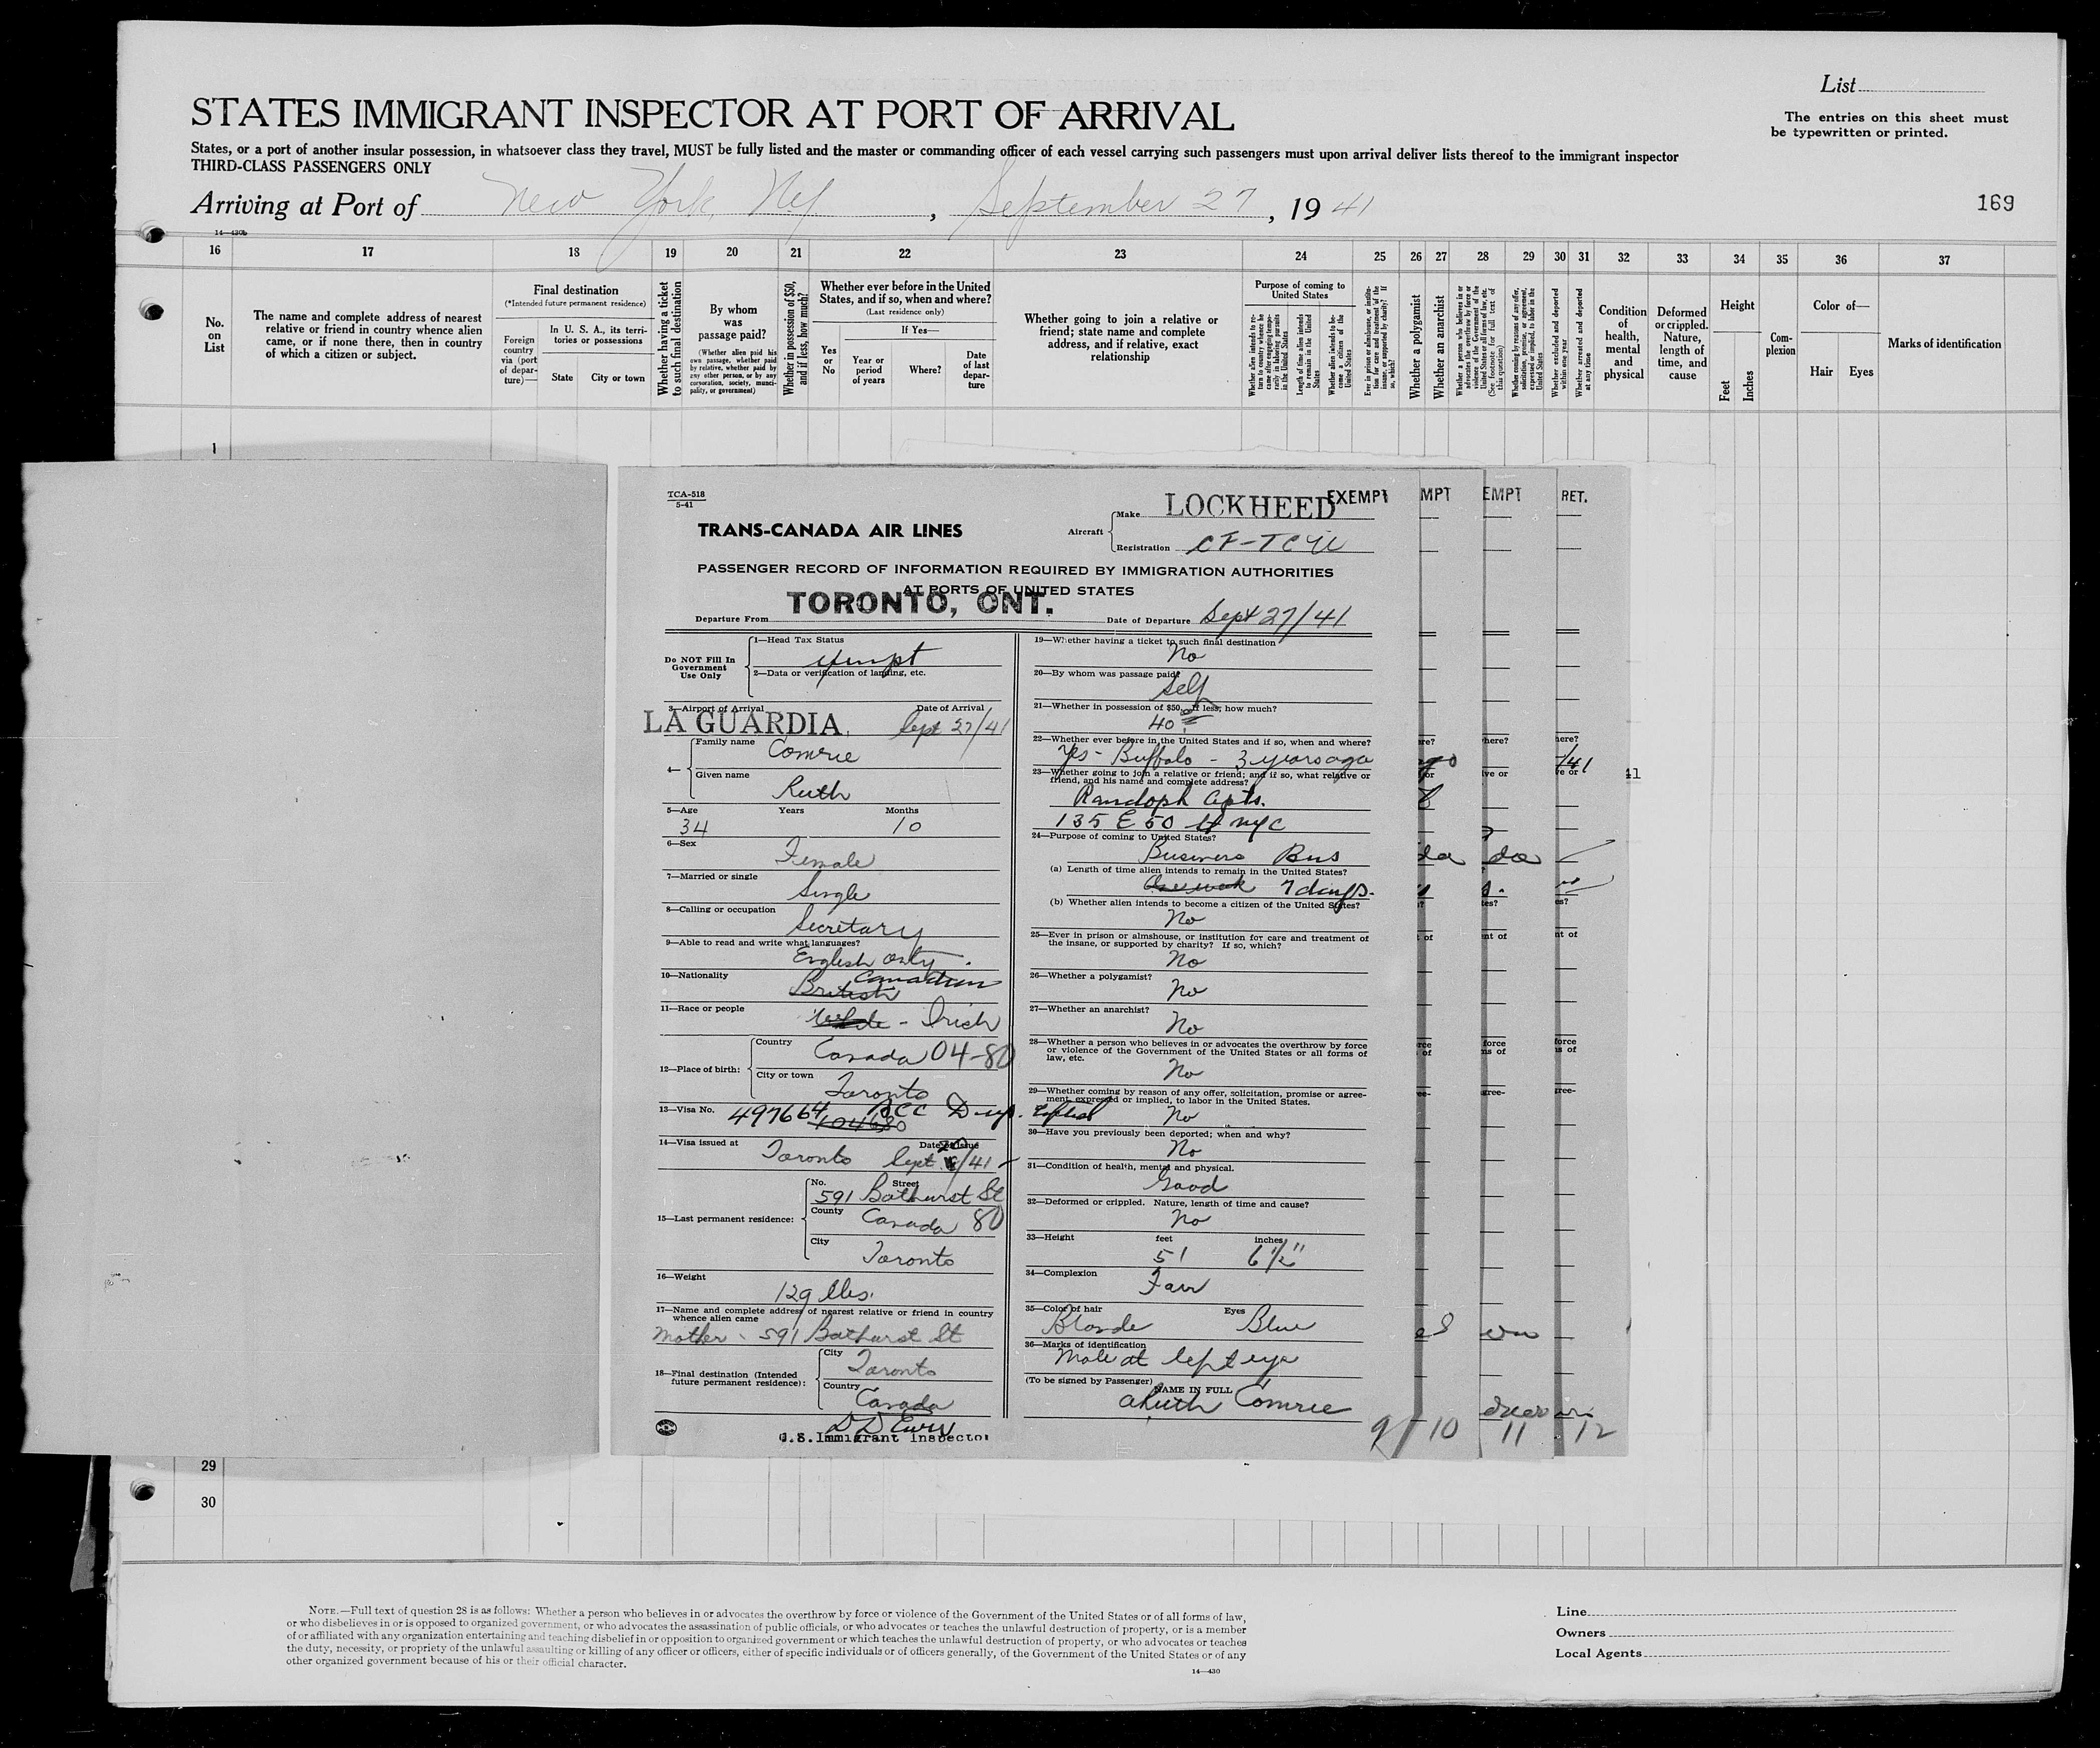 List
The entries on this sheet must
be typewritten or printed.
STATES IMMIGRANT INSPECTOR AT PORT OF ARRIVAL
States, or a port of another insular possession, in whatsoever class they travel, MUST be fully listed and the master or commanding officer of each vessel carrying such passengers must upon arrival deliver lists thereof to the immigrant inspector
THIRD-CLASS PASSENGERS ONLY
Arriving at Port of New York, NY, September 27, 1941
169
14—430b
16 17 18 19 20 21 22 23 24 25 26 27 28 29 30 31 32 33 34 35 36 37
No.
on
List
The name and complete address of nearest
relative or friend in country whence alien
came, or if none there, then in country
of which a citizen or subject.
Final destination
(*Intended future permanent residence)
Foreign
country
via (port
of depar-
ture)—
In U. S. A., its terri-
tories or possessions
State
City or town
Whether having a ticket
to such final destination
By whom
was
passage paid?
(Whether alien paid his
own passage, whether paid
by relative, whether paid by
any other person, or by any
corporation, society, munici-
pality, or government)
Whether in possession of $50,
and if less, how much?
Whether ever before in the United
States, and if so, when and where?
(Last residence only)
Yes
or
No
If Yes—
Year or
period
of years
Where?
Date
of last
depar-
ture
Whether going to join a relative or
friend; state name and complete
address, and if relative, exact
relationship
Purpose of coming to
United States
Whether alien intends to re-
turn to country whence he
came after engaging tempo-
rarily in laboring pursuits
in the United States
Length of time alien intends
to remain in the United
States
Whether alien intends to be-
come a citizen of the
United States
Ever in prison or almshouse, or institu-
tion for care and treatment of the
insane, or supported by charity? If
so, which?
Whether a polygamist
Whether an anarchist
Whether a person who believes in or
advocates the overthrow by force or
violence of the Government of the
United States or all forms of law, etc.
(See footnote for full text of
this question)
Whether coming by reason of any offer,
solicitation, promise, or agreement,
expressed or implied, to labor in the
United States
Whether excluded and deported
within one year
Whether arrested and deported
at any time
Condition
of
health,
mental
and
physical
Deformed
or crippled.
Nature,
length of
time, and
cause
Height
Feet
Inches
Com-
plexion
Color of—
Hair
Eyes
Marks of identification
1
TCA-518
5-41
TRANS-CANADA AIR LINES
Aircraft
Make LOCKHEED
EXEMPT
MPT
EMPT
RET.
Registration CF-TCU
PASSENGER RECORD OF INFORMATION REQUIRED BY IMMIGRATION AUTHORITIES
AT PORTS OF UNITED STATES
Departure From TORONTO, ONT. Date of Departure Sept 27/41
Do NOT Fill In
Government
Use Only
1—Head Tax Status
exempt
2—Data or verification of landing, etc.
3—Airport of Arrival Date of Arrival
LA GUARDIA. Sept 27/41
4—
Family name Comrie
Given name
Ruth
5—Age Years Months
34 10
6—Sex
Female
7—Married or single
Single
8—Calling or occupation
Secretary
9—Able to read and write what languages?
English only.
10—Nationality Canadian
British
11—Race or people
White - Irish
12—Place of birth:
Country
Canada 04-80
City or town
Toronto
13—Visa No. 497664 BCC Dup.
104680
14—Visa issued at Date of Issue
Toronto Sept /41
15—Last permanent residence:
No. Street
591 Bathurst St
County
Canada 80
City
Toronto
16—Weight
129 lbs.
17—Name and complete address of nearest relative or friend in country
whence alien came
Mother - 591 Bathurst St
18—Final destination (Intended
future permanent residence):
City
Toronto
Country
Canada
U.S. Immigrant Inspector
19—Whether having a ticket to such final destination
No
20—By whom was passage paid?
Self
21—Whether in possession of $50, if less, how much?
40
22—Whether ever before in the United States and if so, when and where?
Yes - Buffalo - 3 years ago
23—Whether going to join a relative or friend; and if so, what relative or
friend, and his name and complete address?
Randoph Apts.
135 E 50 St NYC
24—Purpose of coming to United States?
Business Bus
(a) Length of time alien intends to remain in the United States?
One week 7 days.
(b) Whether alien intends to become a citizen of the United States?
No
25—Ever in prison or almshouse, or institution for care and treatment of
the insane, or supported by charity? If so, which?
No
26—Whether a polygamist?
No
27—Whether an anarchist?
No
28—Whether a person who believes in or advocates the overthrow by force
or violence of the Government of the United States or all forms of
law, etc.
No
29—Whether coming by reason of any offer, solicitation, promise or agree-
ment, expressed or implied, to labor in the United States.
No
30—Have you previously been deported; when and why?
No
31—Condition of health, mental and physical.
Good
32—Deformed or crippled. Nature, length of time and cause?
No
33—Height feet inches
5' 6 1/2"
34—Complexion
Fair
35—Color of hair Eyes
Blonde Blue
36—Marks of identification
Mole at left eye
(To be signed by Passenger)
NAME IN FULL
Ruth Comrie
9 10 11 12
29
30
NOTE.—Full text of question 28 is as follows: Whether a person who believes in or advocates the overthrow by force or violence of the Government of the United States or of all forms of law,
or who disbelieves in or is opposed to organized government, or who advocates the assassination of public officials, or who advocates or teaches the unlawful destruction of property, or is a member
of or affiliated with any organization entertaining and teaching disbelief in or opposition to organized government or which teaches the unlawful destruction of property, or who advocates or teaches
the duty, necessity, or propriety of the unlawful assaulting or killing of any officer or officers, either of specific individuals or of officers generally, of the Government of the United States or of any
other organized government because of his or their official character.
14—430
Line
Owners
Local Agents